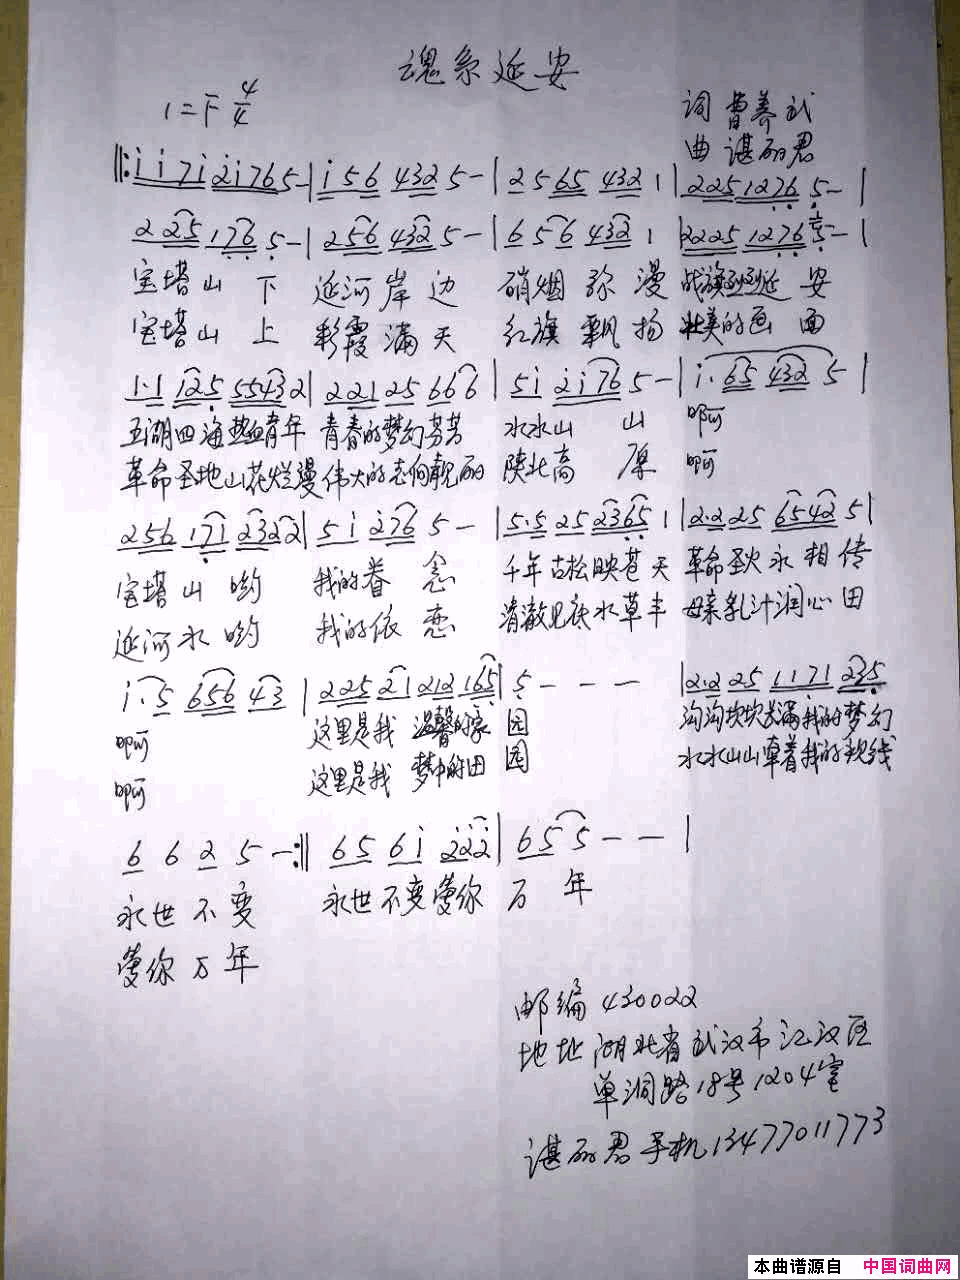 魂系延安
1=F 4/4
词 曹养武
曲 谌丽君
‖: i i 7 i 2 i 7 6 5 - | i 5 6 4 3 2 5 - | 2 5 6 5 4 3 2 1 | 2 2 5 1 2 7 6 5 - |
2 2 5 1 7 6 5 - | 2 5 6 4 3 2 5 - | 6 5 6 4 3 2 1 | 2 2 2 5 1 2 7 6 5 - |
宝塔山 下 延河岸 边 硝烟 弥 漫 战旗 延 安
宝塔山 上 彩霞满 天 红旗 飘 扬 壮美的画 面
1·1 1 2 5 5 5 4 3 2 | 2 2 1 2 5 6 6 6 | 5 i 2 i 7 6 5 - | i· 6 5 4 3 2 5 |
五湖四海热血青年 青春的梦幻芳芳 水水山 山 啊
革命圣地山花烂漫 伟大的志向靓丽 陕北高 原 啊
2 5 6 1 7 1 2 3 2 2 | 5 i 2 7 6 5 - | 5·5 2 5 2 3 6 5 1 | 2·2 2 5 6 5 4 2 5 |
宝塔山 哟 我的眷 念 千年古松映苍天 革命圣火永相传
延河水哟 我的依 恋 清澈见底水草丰 母亲乳汁润心田
i· 5 6 5 6 4 3 | 2 2 5 2 1 2 1 2 1 6 5 | 5 - - - | 2·2 2 5 1 1 7 1 2 3 5
啊 这里是我 温馨的家 园 沟沟坎坎 满我的梦幻
啊 这里是我 梦中的田 园 水水山山牵着我的 线
6 6 2 5 - :‖ 6 5 6 i 2 2 2 | 6 5 5 - - |
永世不变 永世不变 你 万 年
你万年
邮编 430022
地址 湖北省武汉市江汉区
单洞路18号1204室
谌丽君手机13477011773
本曲谱源自 中国词曲网